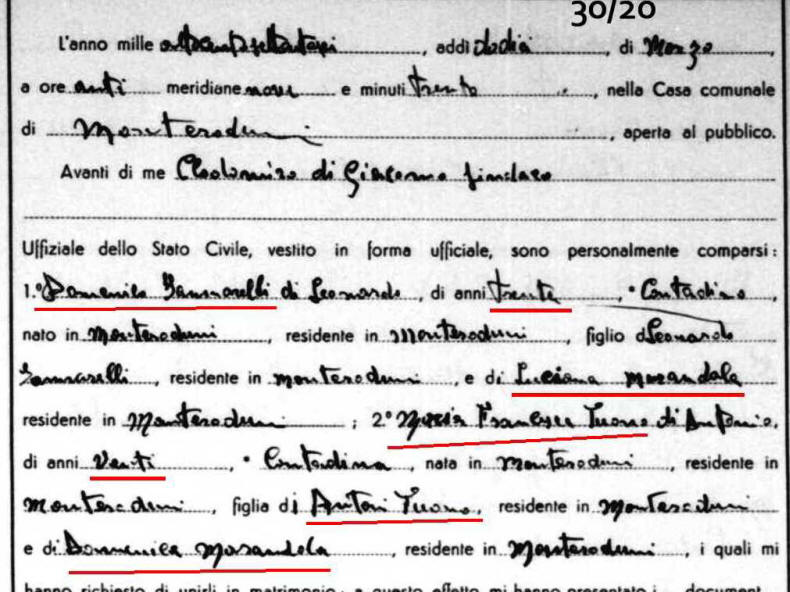 30/20
L'anno mille, addì dodici, di Marzo,
a ore anti meridiane nove e minuti trenta, nella Casa comunale
di Monteroduni, aperta al pubblico.
Avanti di me Clodomiro di Giacomo Sindaco
Uffiziale dello Stato Civile, vestito in forma ufficiale, sono personalmente comparsi:
1.º Domenico di Leonardo, di anni trenta, Contadino,
nato in Monteroduni, residente in Monteroduni, figlio di Leonardo
residente in Monteroduni, e di Luciana
residente in Monteroduni; 2.º Maria Francesca Tuono di Antonio,
di anni Venti, Contadina, nata in Monteroduni, residente in
Monteroduni, figlia di Antoni Tuono, residente in Monteroduni
e di Domenica, residente in Monteroduni, i quali mi
hanno richiesto di unirli in matrimonio; a questo effetto mi hanno presentato i document